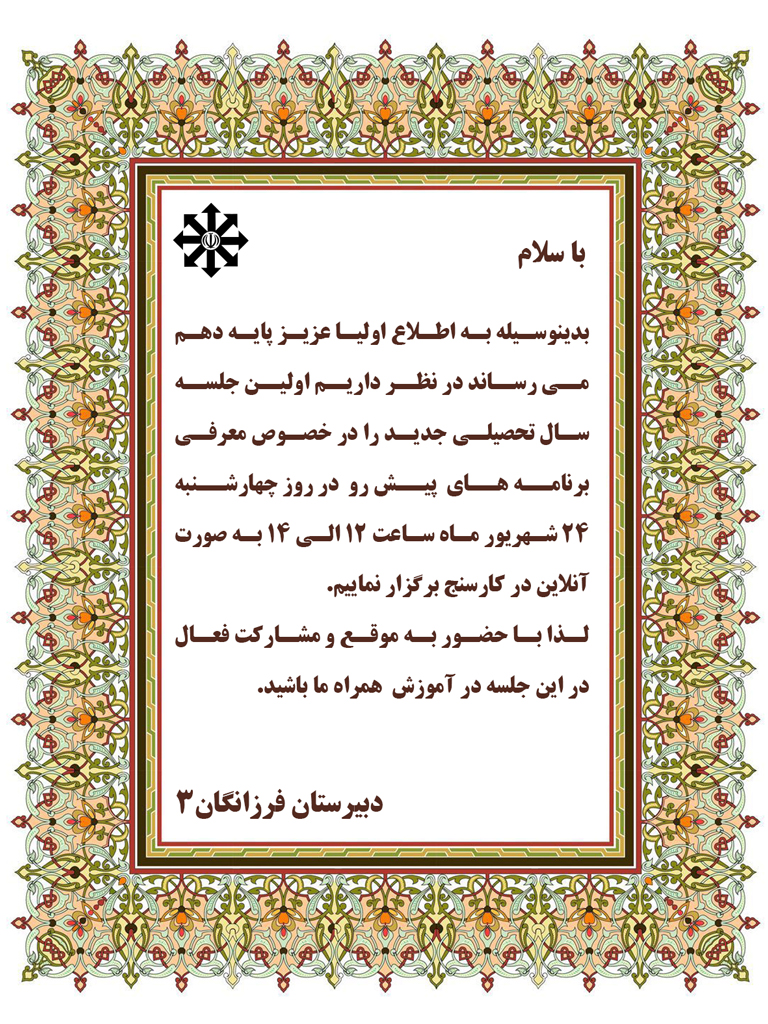 با سلام
بدینوسیله به اطلاع اولیا عزیز پایه دهم
می رساند در نظر داریم اولین جلسه
سال تحصیلی جدید را در خصوص معرفی
برنامه های پیش رو در روز چهارشنبه
۲۴ شهریور ماه ساعت ۱۲ الی ۱۴ به صورت
آنلاین در کارسنج برگزار نماییم.
لذا با حضور به موقع و مشارکت فعال
در این جلسه در آموزش همراه ما باشید.
دبیرستان فرزانگان۳